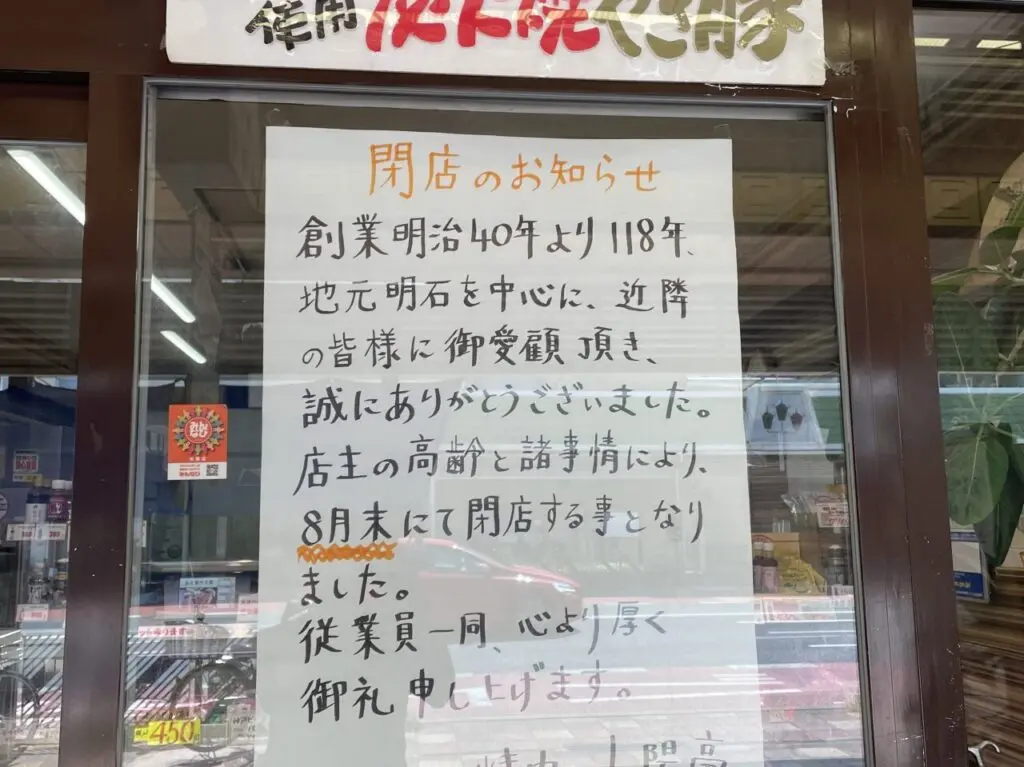 使用 炭火焼やき豚
閉店のお知らせ
創業明治40年より118年、
地元明石を中心に、近隣
の皆様に御愛顧頂き、
誠にありがとうございました。
店主の高齢と諸事情により、
8月末にて閉店する事となり
ました。
従業員一同、心より厚く
御礼申し上げます。
450